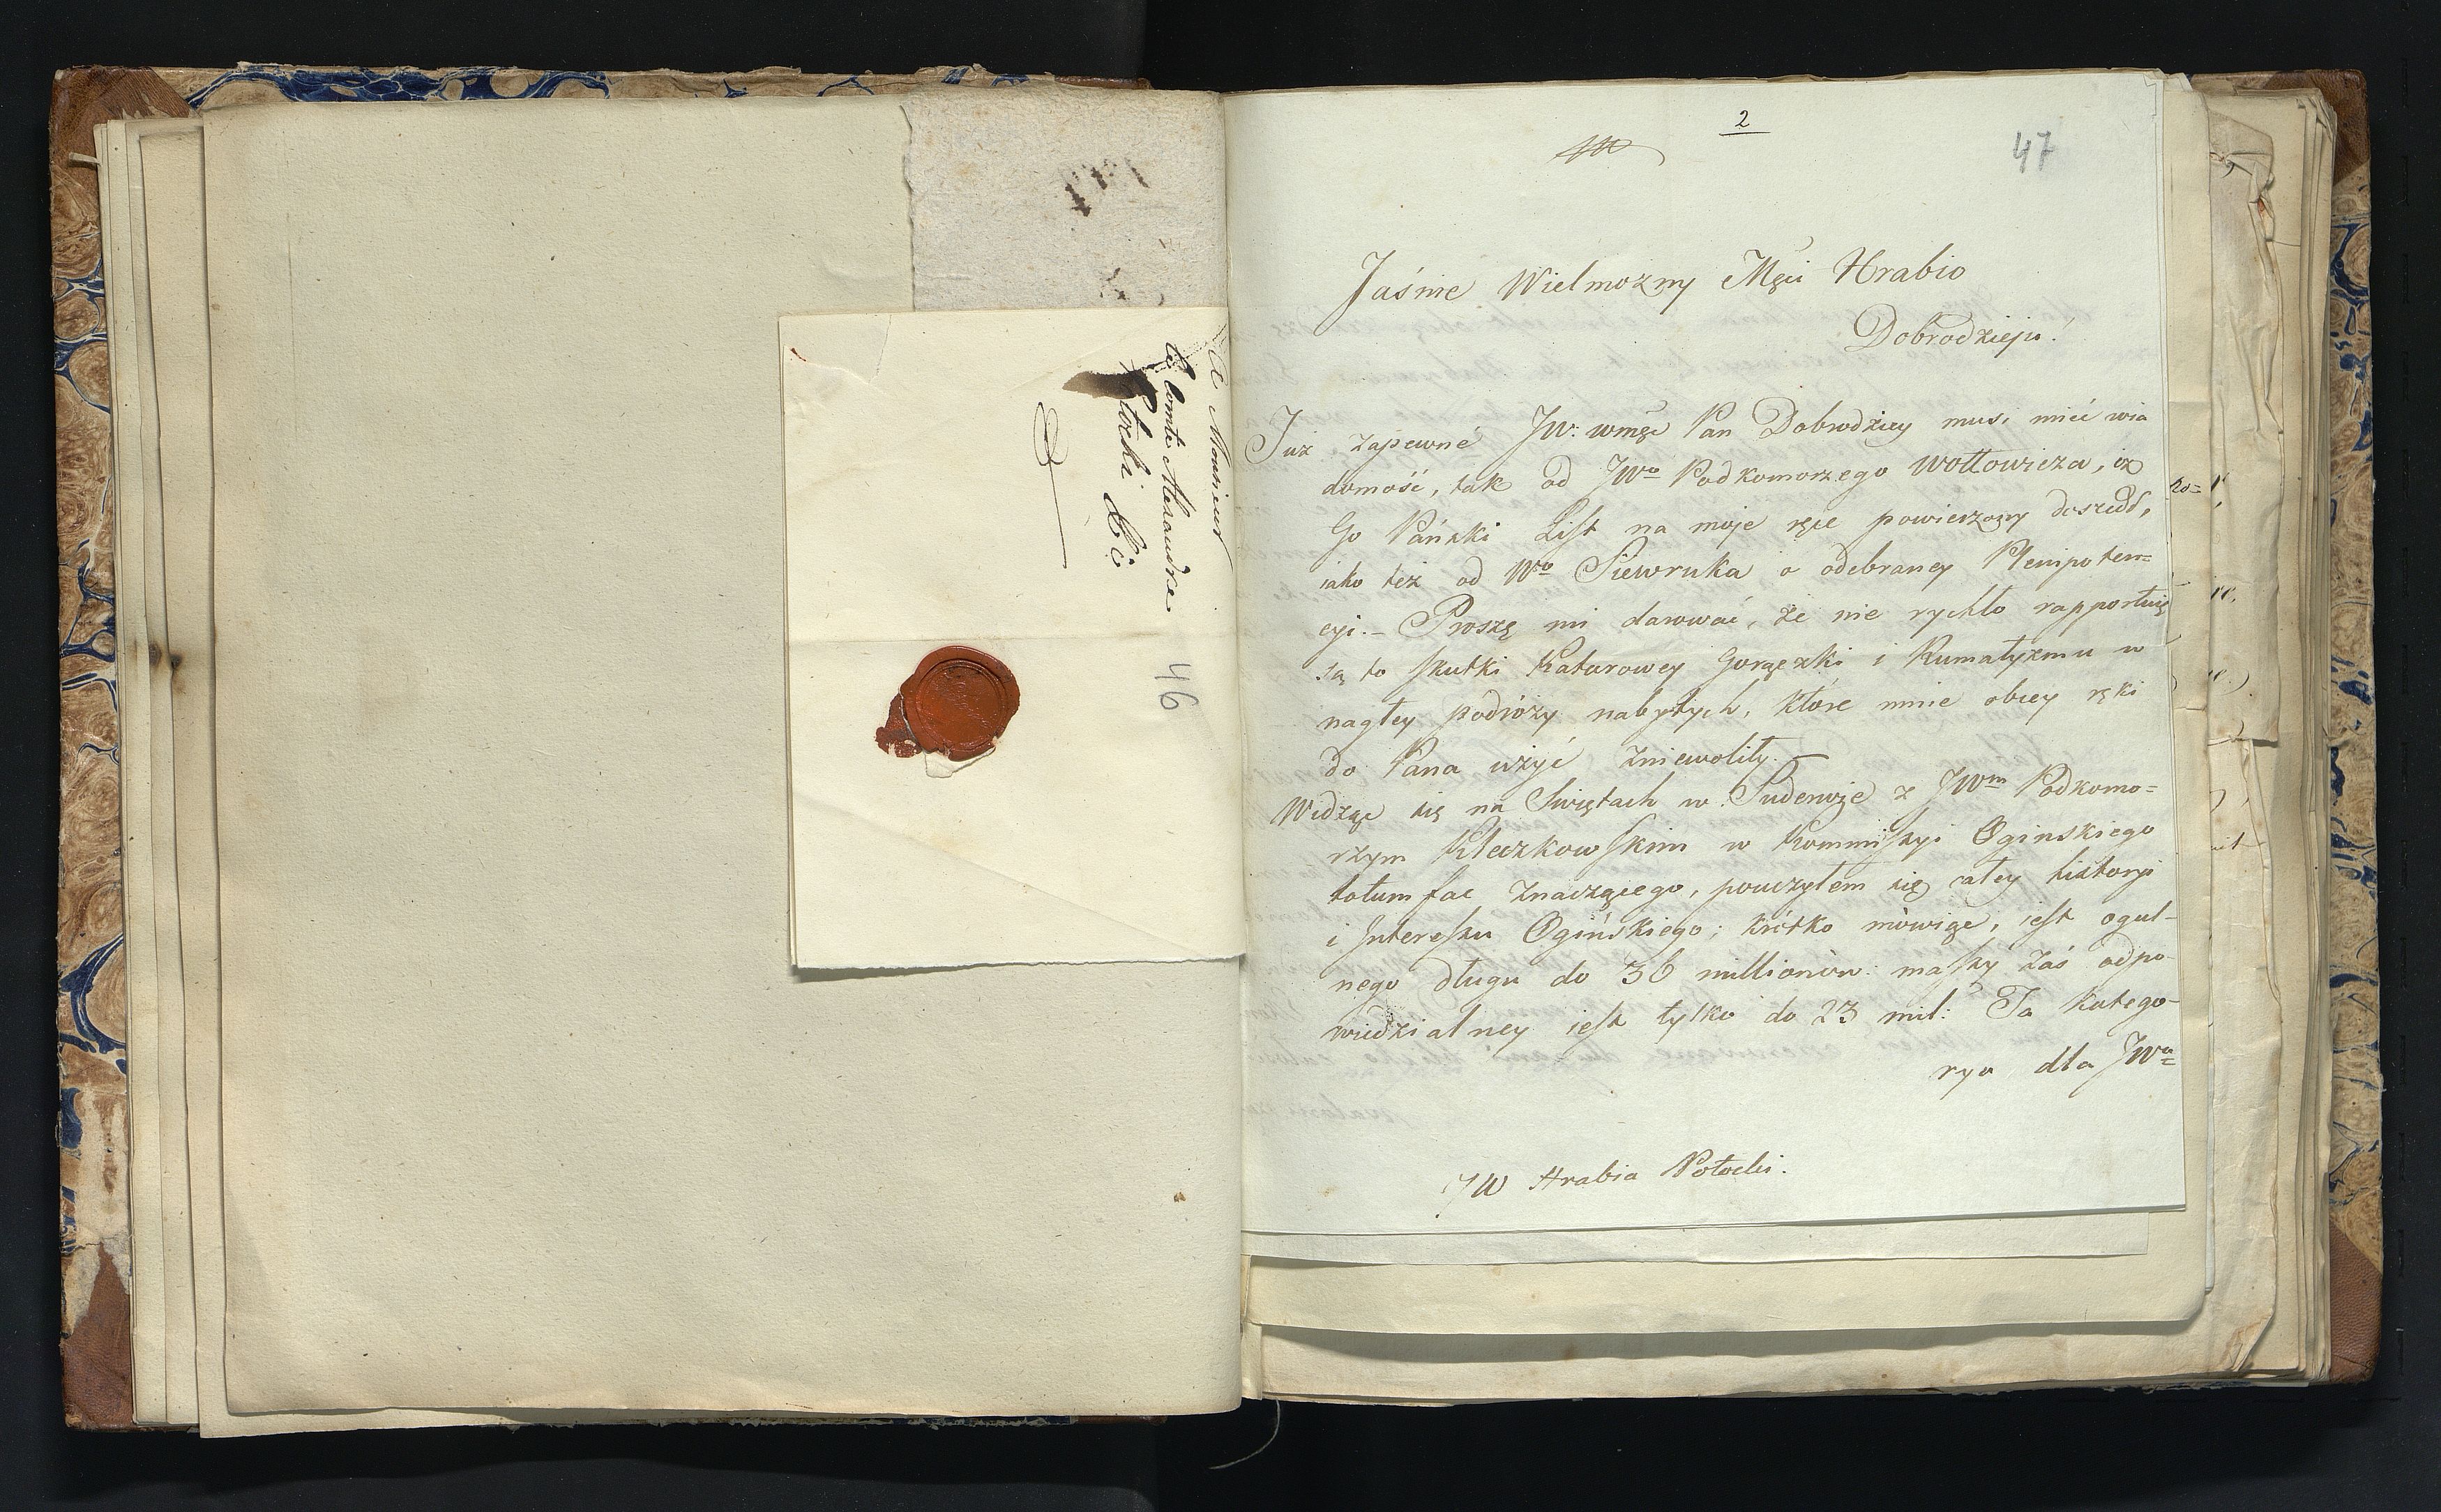 A Monsieur
le Comte Alexandre
Potocki &c
46
2
47
Jaśnie Wielmozny Mści Hrabio
Dobrodzieju!
Juz zapewne JW: wmść Pan Dobrodziey musi mieć wia
domość, tak od JWo Podkomorzego Wołłowicza, iż
Go Pański List na moje ręce powierzony doszedł,
iako też od Wo Siewruka o odebraney Plenipoten=
cyi. – Proszę mi darować, że nie rychło rapportuię
są to skutki Katarowey Gorączki i Rumatyzmu w
nagłey podróży nabytych, które mnie obcey ręki
do Pana użyć zniewoliły. –
Widząc się na Swiętach w Suderwie z JWm Podkomo=
rzym Kleczkowskim w Kommissyi Oginskiego
totum fac znaczącego, pouczyłem się całey historyi
i Interessu Ogińskiego; krótko mówiąc, iest ogul-
nego długu do 36 millionòw: massy zaś odpo-
wiedzialney iest tylko do 23 mil: Ta katego-
rya dla JWo=
JW Hrabia Potocki.